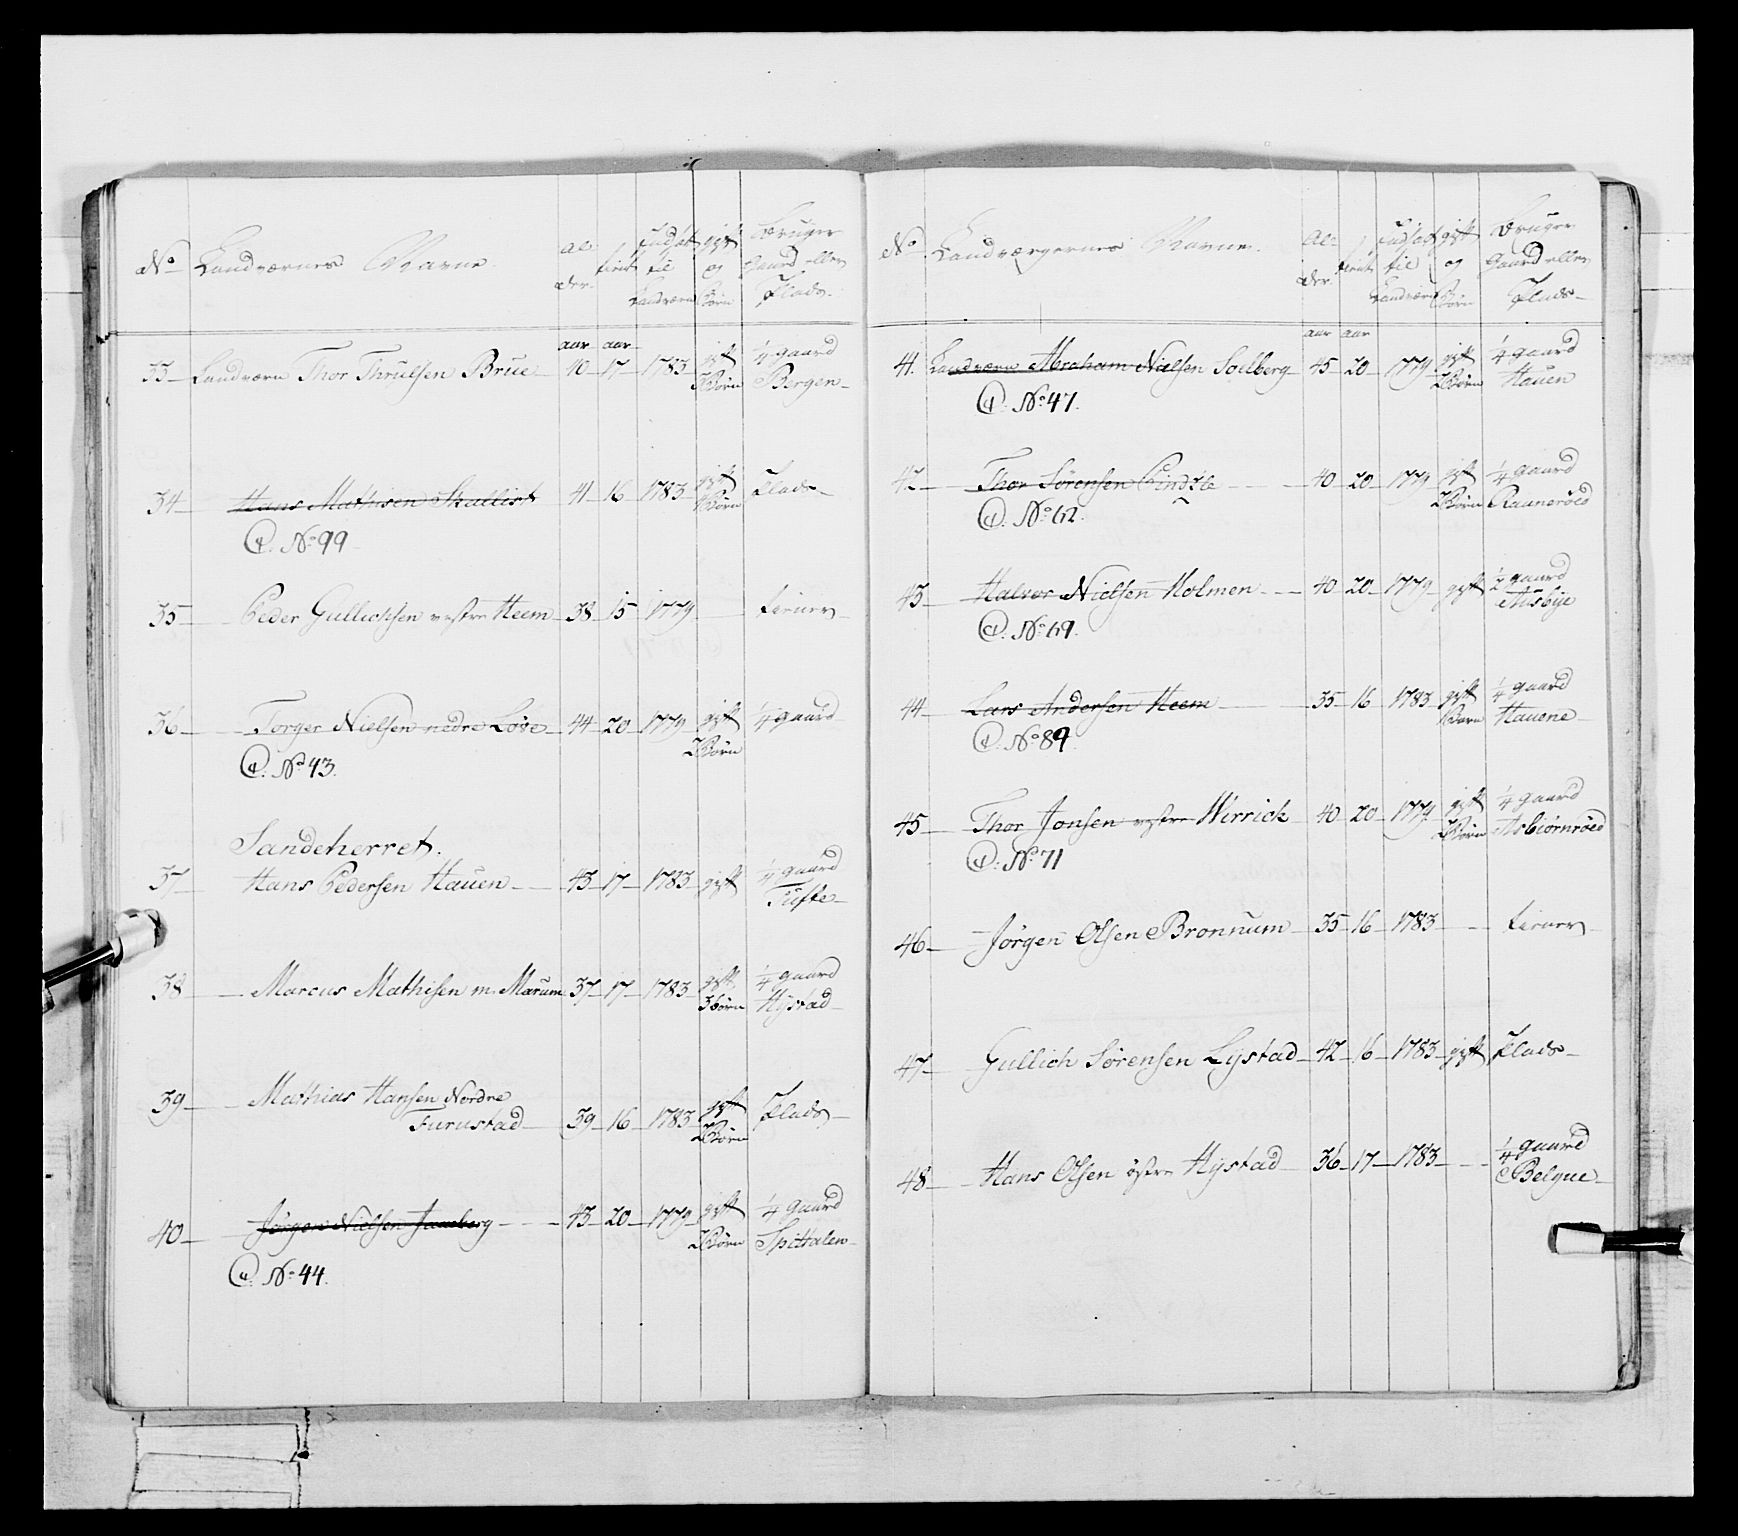 No Landværnes Navne Al- der. tient Indsat til Landværn gift og Børn Bruger Gaard eller Plads.
aar aar
33 Landværn Thor Thrulsen Brue 40 17 1783 gift 2 Børn 1/4 gaard Bergen
34 Hans Mathisen Skallist 41 16 1783 gift 1 Børn Plads
No 99
35 Peder Gullichsen vestre Heem 38 15 1779 tiener
36 Torger Nielsen nedre Løve 44 20 1779 gift 2 Børn 1/4 gaard
No 43.
Sandeherret.
37 Hans Pedersen Hauen 43 17 1783 gift 1/4 gaard Tufte
38 Marcus Mathisen m. Marum 37 17 1783 gift 3 børn 1/4 gaard Hÿstad
39 Mathias Hansen Nordre
Furustad 39 16 1783 gift 2 Børn Plads
40 Jørgen Nielsen 43 20 1779 gift 2 Børn 1/4 gaard Spittalen
No 44.
No Landværgernes Navne. Al- der. tient Indsat til Landværn gift og Børn Bruger Gaard eller Plads
aar aar
41. Landværn Abraham Nielsen Solberg 45 20 1779 gift 2 Børn 1/4 gaard Hauen
No 47.
42 Thor Sørensen 40 20 1779 gift 2 Børn 1/4 gaard Rauneröed
No 62.
43 Halvor Nielsen Holmen 40 20 1779 gift 1/2 gaard Aüsbÿe
No 69.
44 Lars Andersen Heem 35 16 1783 gift 1 Barn 1/4 gaard Hauene
No 89.
45 Thor Jonsen vestre Wirrick 40 20 1779 gift 2 Børn 1/4 gaard Asbiörnröed
No 71
46 Jörgen Olsen Bronnum 35 16 1783 tiener
47 Gullich Sörensen Lÿstad 42 16 1783 gift Plads
48 Hans Olsen östre Hÿstad 36 17 1783 1/4 gaard Belgue